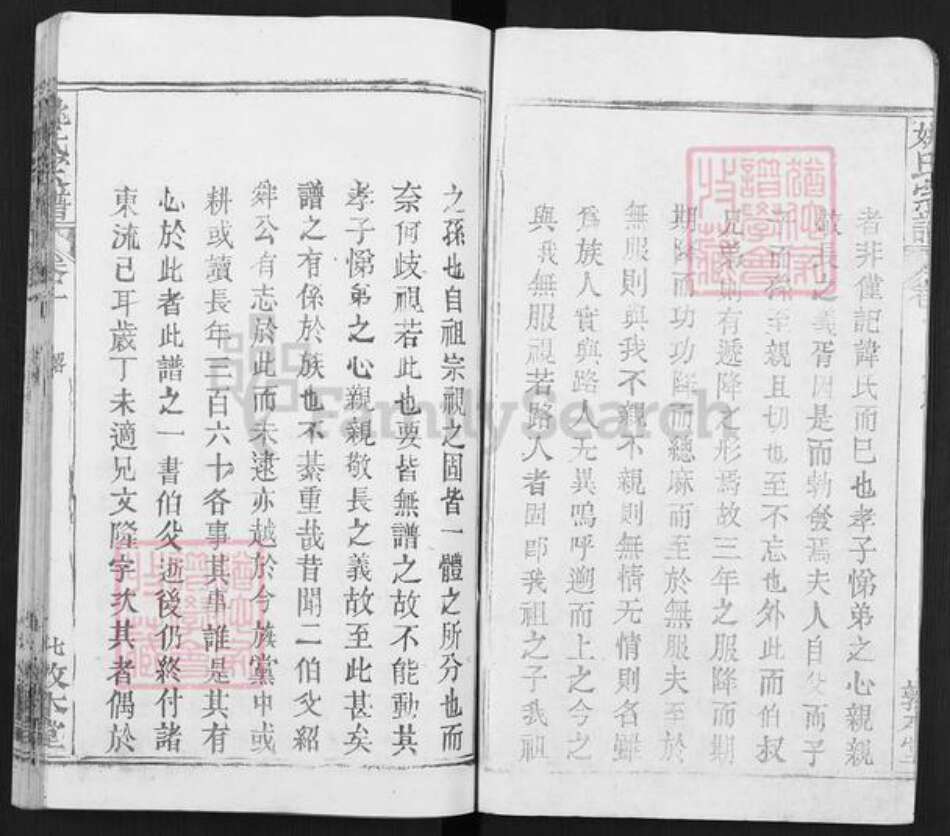 姚氏宗譜
者非僅記諱氏而巳也孝子悌弟之心親親
敬長之義胥因是而勃發焉夫人自父而子
而孫至親且切也至不忘也外此而伯叔
兄弟則有遞降之形焉故三年之服降而期
期降而功功降而緦麻而至於無服夫至於
無服則與我不親不親則無情无情則名雖
為族人實與路人无異嗚呼遡而上之今之
與我無服視若路人者固即我祖之子我祖
敦本堂
之孫也自祖宗視之固皆一體之所分也而
奈何歧視若此也要皆無譜之故不能動其
孝子悌弟之心親親敬長之義故至此甚矣
譜之有係於族也不綦重哉昔聞二伯父紹
舜公有志於此而未逮亦越於今族黨中或
耕或讀長年三百六十各事其事誰是其有
心於此者此譜之一書伯父逝後仍終付諸
東流已耳歲丁未適兄文隆字次其者偶於
姚氏宗譜
卷一
七 敦本堂
FamilySearch